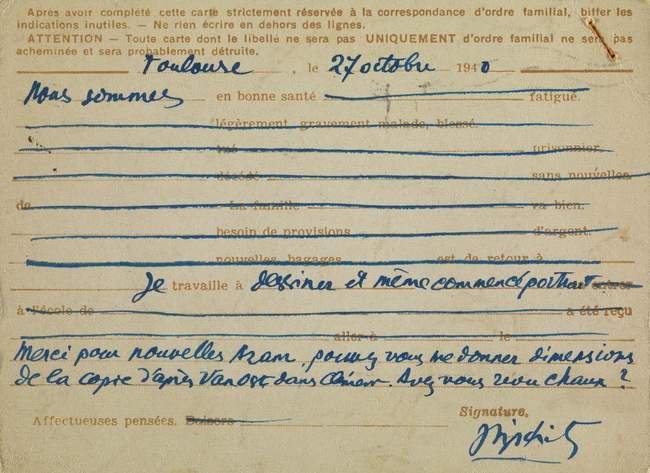 Après avoir complété cette carte strictement réservée à la correspondance d'ordre familial, biffer les
indications inutiles. — Ne rien écrire en dehors des lignes.
ATTENTION — Toute carte dont le libellé ne sera pas UNIQUEMENT d'ordre familial ne sera pas
acheminée et sera probablement détruite.
Toulouse, le 27 octobre 1940
Nous sommes en bonne santé fatigué.
légèrement, gravement malade, blessé.
tué prisonnier.
décédé sans nouvelles
de La famille va bien.
besoin de provisions d'argent.
nouvelles, bagages est de retour à
Je travaille à dessiner et même commencé portrait entrer
à l'école de a été reçu
aller à le
Merci pour nouvelles Aram, pouvez vous me donner dimensions
de la copie d'après Van Ost dans. Avez vous revu Chaux ?
Affectueuses pensées. Baisers
Signature,